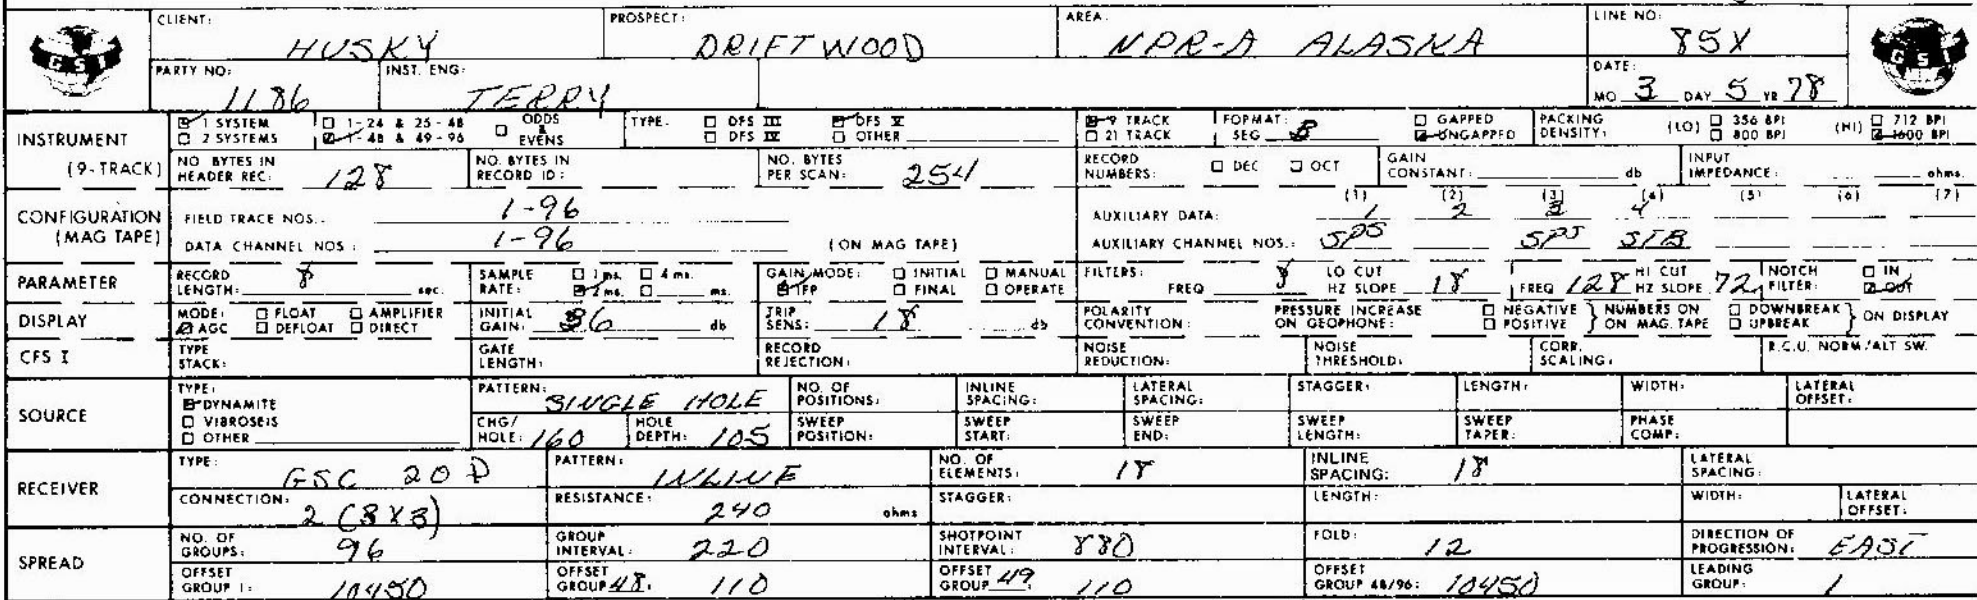 CLIENT: HUSKY PROSPECT: DRIFTWOOD AREA: NPR-A ALASKA LINE NO: 85X
GSI GSI
PARTY NO: 1186 INST. ENG: TERRY DATE: MO 3 DAY 5 YR 78
INSTRUMENT (9-TRACK)
1 SYSTEM 1-24 & 25-48 ODDS & EVENS TYPE: DFS III DFS V 9 TRACK FORMAT: SEG B GAPPED PACKING DENSITY: (LO) 356 BPI (HI) 712 BPI
2 SYSTEMS 1-48 & 49-96 DFS IV OTHER 21 TRACK UNGAPPED 800 BPI 1600 BPI
NO. BYTES IN HEADER REC: 128 NO. BYTES IN RECORD ID: NO. BYTES PER SCAN: 254 RECORD NUMBERS: DEC OCT GAIN CONSTANT: db INPUT IMPEDANCE: ohms.
CONFIGURATION (MAG TAPE)
(1) (2) (3) (4) (5) (6) (7)
FIELD TRACE NOS.: 1-96 AUXILIARY DATA: 1 2 3 4
DATA CHANNEL NOS: 1-96 (ON MAG TAPE) AUXILIARY CHANNEL NOS.: SPS SPS STB
PARAMETER
RECORD LENGTH: 8 sec. SAMPLE RATE: 1 ms. 4 ms. 2 ms. ms. GAIN MODE: INITIAL MANUAL IFP FINAL OPERATE FILTERS: FREQ 8 LO CUT HZ SLOPE 18 FREQ 128 HI CUT HZ SLOPE 72 NOTCH FILTER: IN OUT
DISPLAY
MODE: FLOAT AMPLIFIER AGC DEFLOAT DIRECT INITIAL GAIN: 36 db TRIP SENS: 18 db POLARITY CONVENTION: PRESSURE INCREASE ON GEOPHONE: NEGATIVE POSITIVE } NUMBERS ON MAG. TAPE DOWNBREAK UPBREAK } ON DISPLAY
CFS I TYPE STACK: GATE LENGTH: RECORD REJECTION: NOISE REDUCTION: NOISE THRESHOLD: CORR. SCALING: R.C.U. NORM/ALT SW.
SOURCE
TYPE: DYNAMITE VIBROSEIS OTHER PATTERN: SINGLE HOLE NO. OF POSITIONS: INLINE SPACING: LATERAL SPACING: STAGGER: LENGTH: WIDTH: LATERAL OFFSET:
CHG/HOLE: 160 HOLE DEPTH: 105 SWEEP POSITION: SWEEP START: SWEEP END: SWEEP LENGTH: SWEEP TAPER: PHASE COMP:
RECEIVER
TYPE: GSC 20 D PATTERN: INLINE NO. OF ELEMENTS: 18 INLINE SPACING: 18 LATERAL SPACING:
CONNECTION: 2 (3X3) RESISTANCE: 240 ohms STAGGER: LENGTH: WIDTH: LATERAL OFFSET:
SPREAD
NO. OF GROUPS: 96 GROUP INTERVAL: 220 SHOTPOINT INTERVAL: 880 FOLD: 12 DIRECTION OF PROGRESSION: EAST
OFFSET GROUP 1: 10450 OFFSET GROUP 48: 110 OFFSET GROUP 49: 110 OFFSET GROUP 48/96: 10450 LEADING GROUP: 1